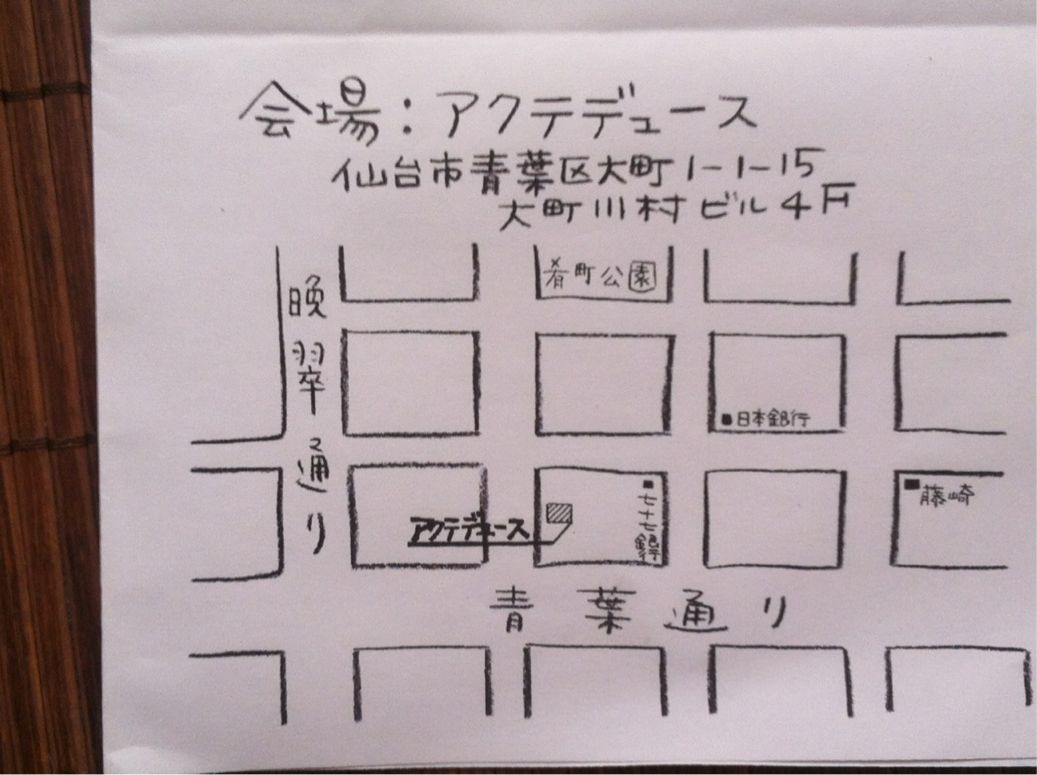 会場：アクテデュース
仙台市青葉区大町1-1-15
大町川村ビル4F
肴町公園
晩翠通り
日本銀行
七十七銀行
藤崎
アクテデュース
青葉通り